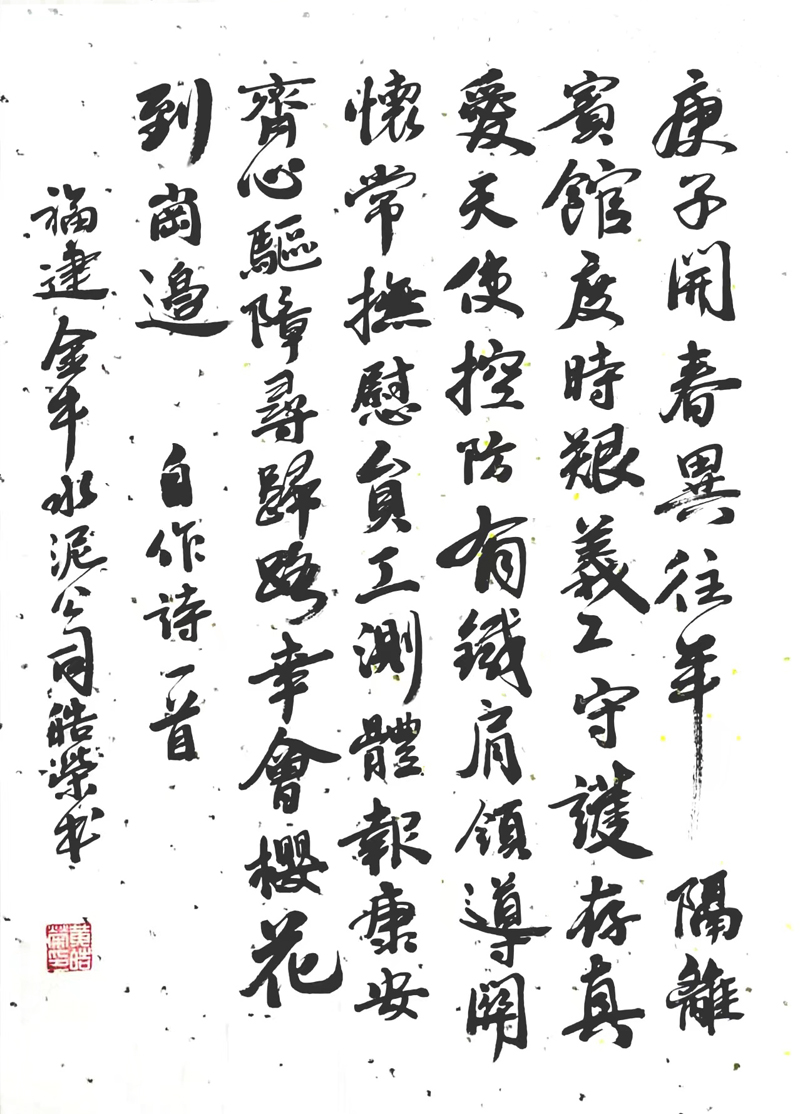 庚子開春異往年 隔離
賓館度時艱義工守護存真
愛天使控防有鐵肩領導關
懷常撫慰員工測體報康安
齊心驅障尋歸路幸會櫻花
到崗邊 自作詩一首
福建金牛水泥公司皓榮书
黃皓榮印